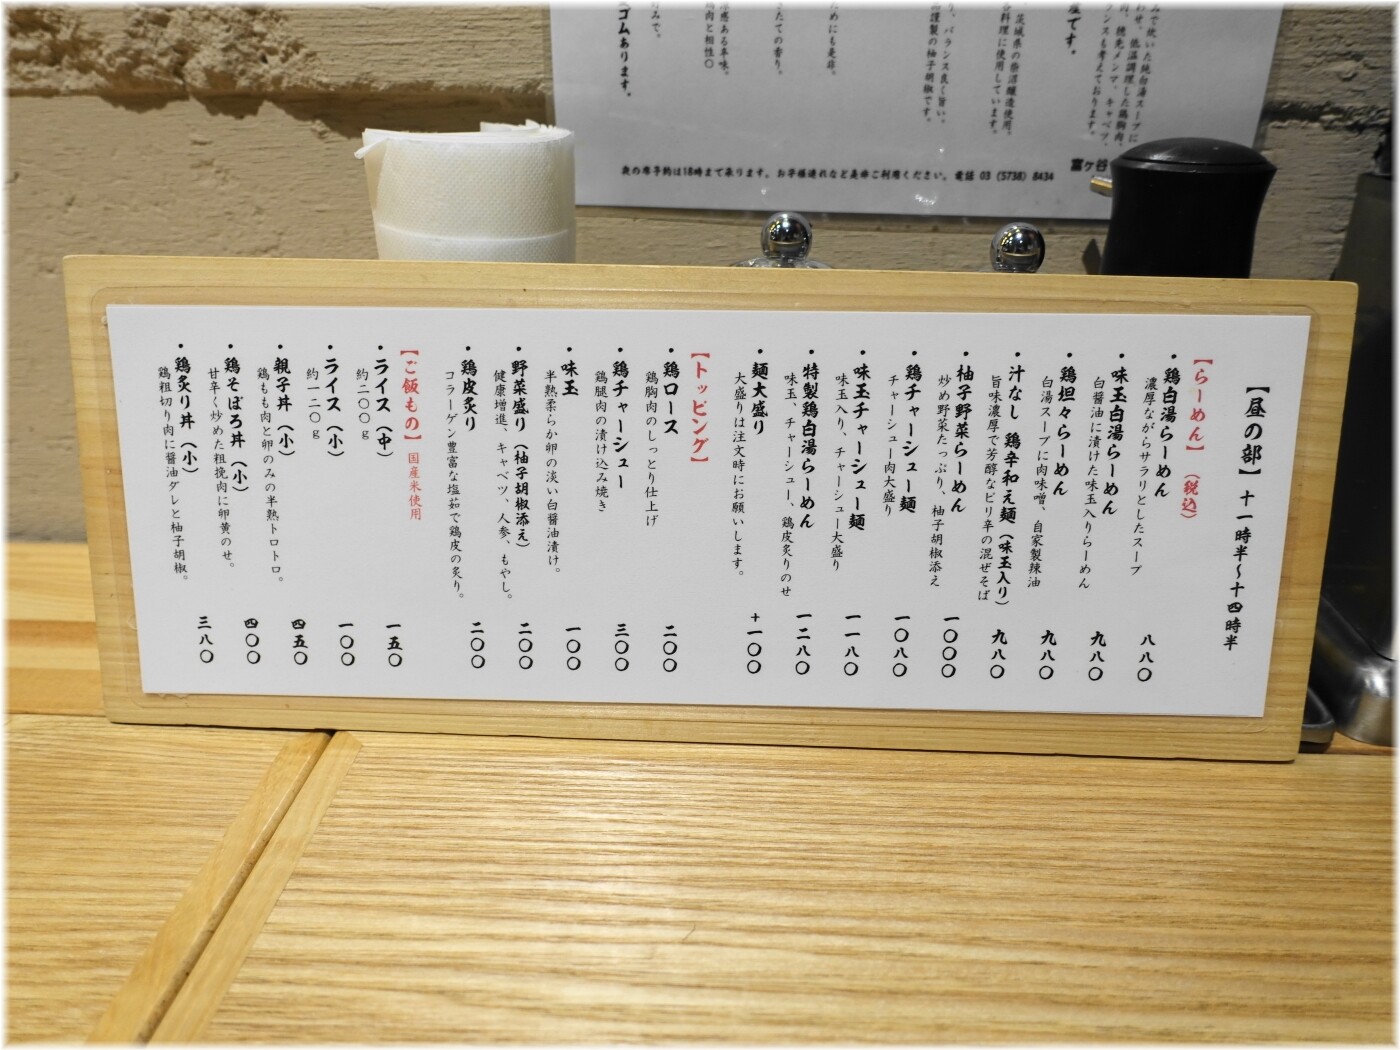 【昼の部】 十一時半〜十四時半
【らーめん】(税込)
・鶏白湯らーめん 八八〇
濃厚ながらサラリとしたスープ
・味玉白湯らーめん 九八〇
白醤油に漬けた味玉入りらーめん
・鶏担々らーめん 九八〇
白湯スープに肉味噌、自家製辣油
・汁なし 鶏辛和え麺(味玉入り) 九八〇
旨味濃厚で芳醇なピリ辛の混ぜそば
・柚子野菜らーめん 一〇〇〇
炒め野菜たっぷり、柚子胡椒添え
・鶏チャーシュー麺 一〇八〇
チャーシュー肉大盛り
・味玉チャーシュー麺 一一八〇
味玉入り、チャーシュー大盛り
・特製鶏白湯らーめん 一二八〇
味玉、チャーシュー、鶏皮炙りのせ
・麺大盛り +一〇〇
大盛りは注文時にお願いします。
【トッピング】
・鶏ロース 二〇〇
鶏胸肉のしっとり仕上げ
・鶏チャーシュー 三〇〇
鶏腿肉の漬け込み焼き
・味玉 一〇〇
半熟柔らか卵の淡い白醤油漬け。
・野菜盛り(柚子胡椒添え) 二〇〇
健康増進、キャベツ、人参、もやし。
・鶏皮炙り 二〇〇
コラーゲン豊富な塩茹で鶏皮の炙り。
【ご飯もの】国産米使用
・ライス(中) 一五〇
約二〇〇g
・ライス(小) 一〇〇
約一二〇g
・親子丼(小) 四五〇
鶏もも肉と卵のみの半熟トロトロ。
・鶏そぼろ丼(小) 四〇〇
甘辛く炒めた粗挽肉に卵黄のせ。
・鶏炙り丼(小) 三八〇
鶏粗切り肉に醤油ダレと柚子胡椒。
みで炊いた純白湯スープに
わせ、低温調理した鶏胸肉、
肉、穂先メンマ、キャベツ、
ランスも考えております。
座です。
茨城県の柴沼醸造使用。
谷料理に使用しています。
り、バランス良く旨い。
品謹製の柚子胡椒です。
ためにも是非。
たての香り。
涼感ある辛味。
鶏肉と相性〇
好みで。
ゴムあります。
夜の御予約は18時まで承ります。お子様連れなど是非ご利用ください。電話 03 (5738) 8434
富ヶ谷